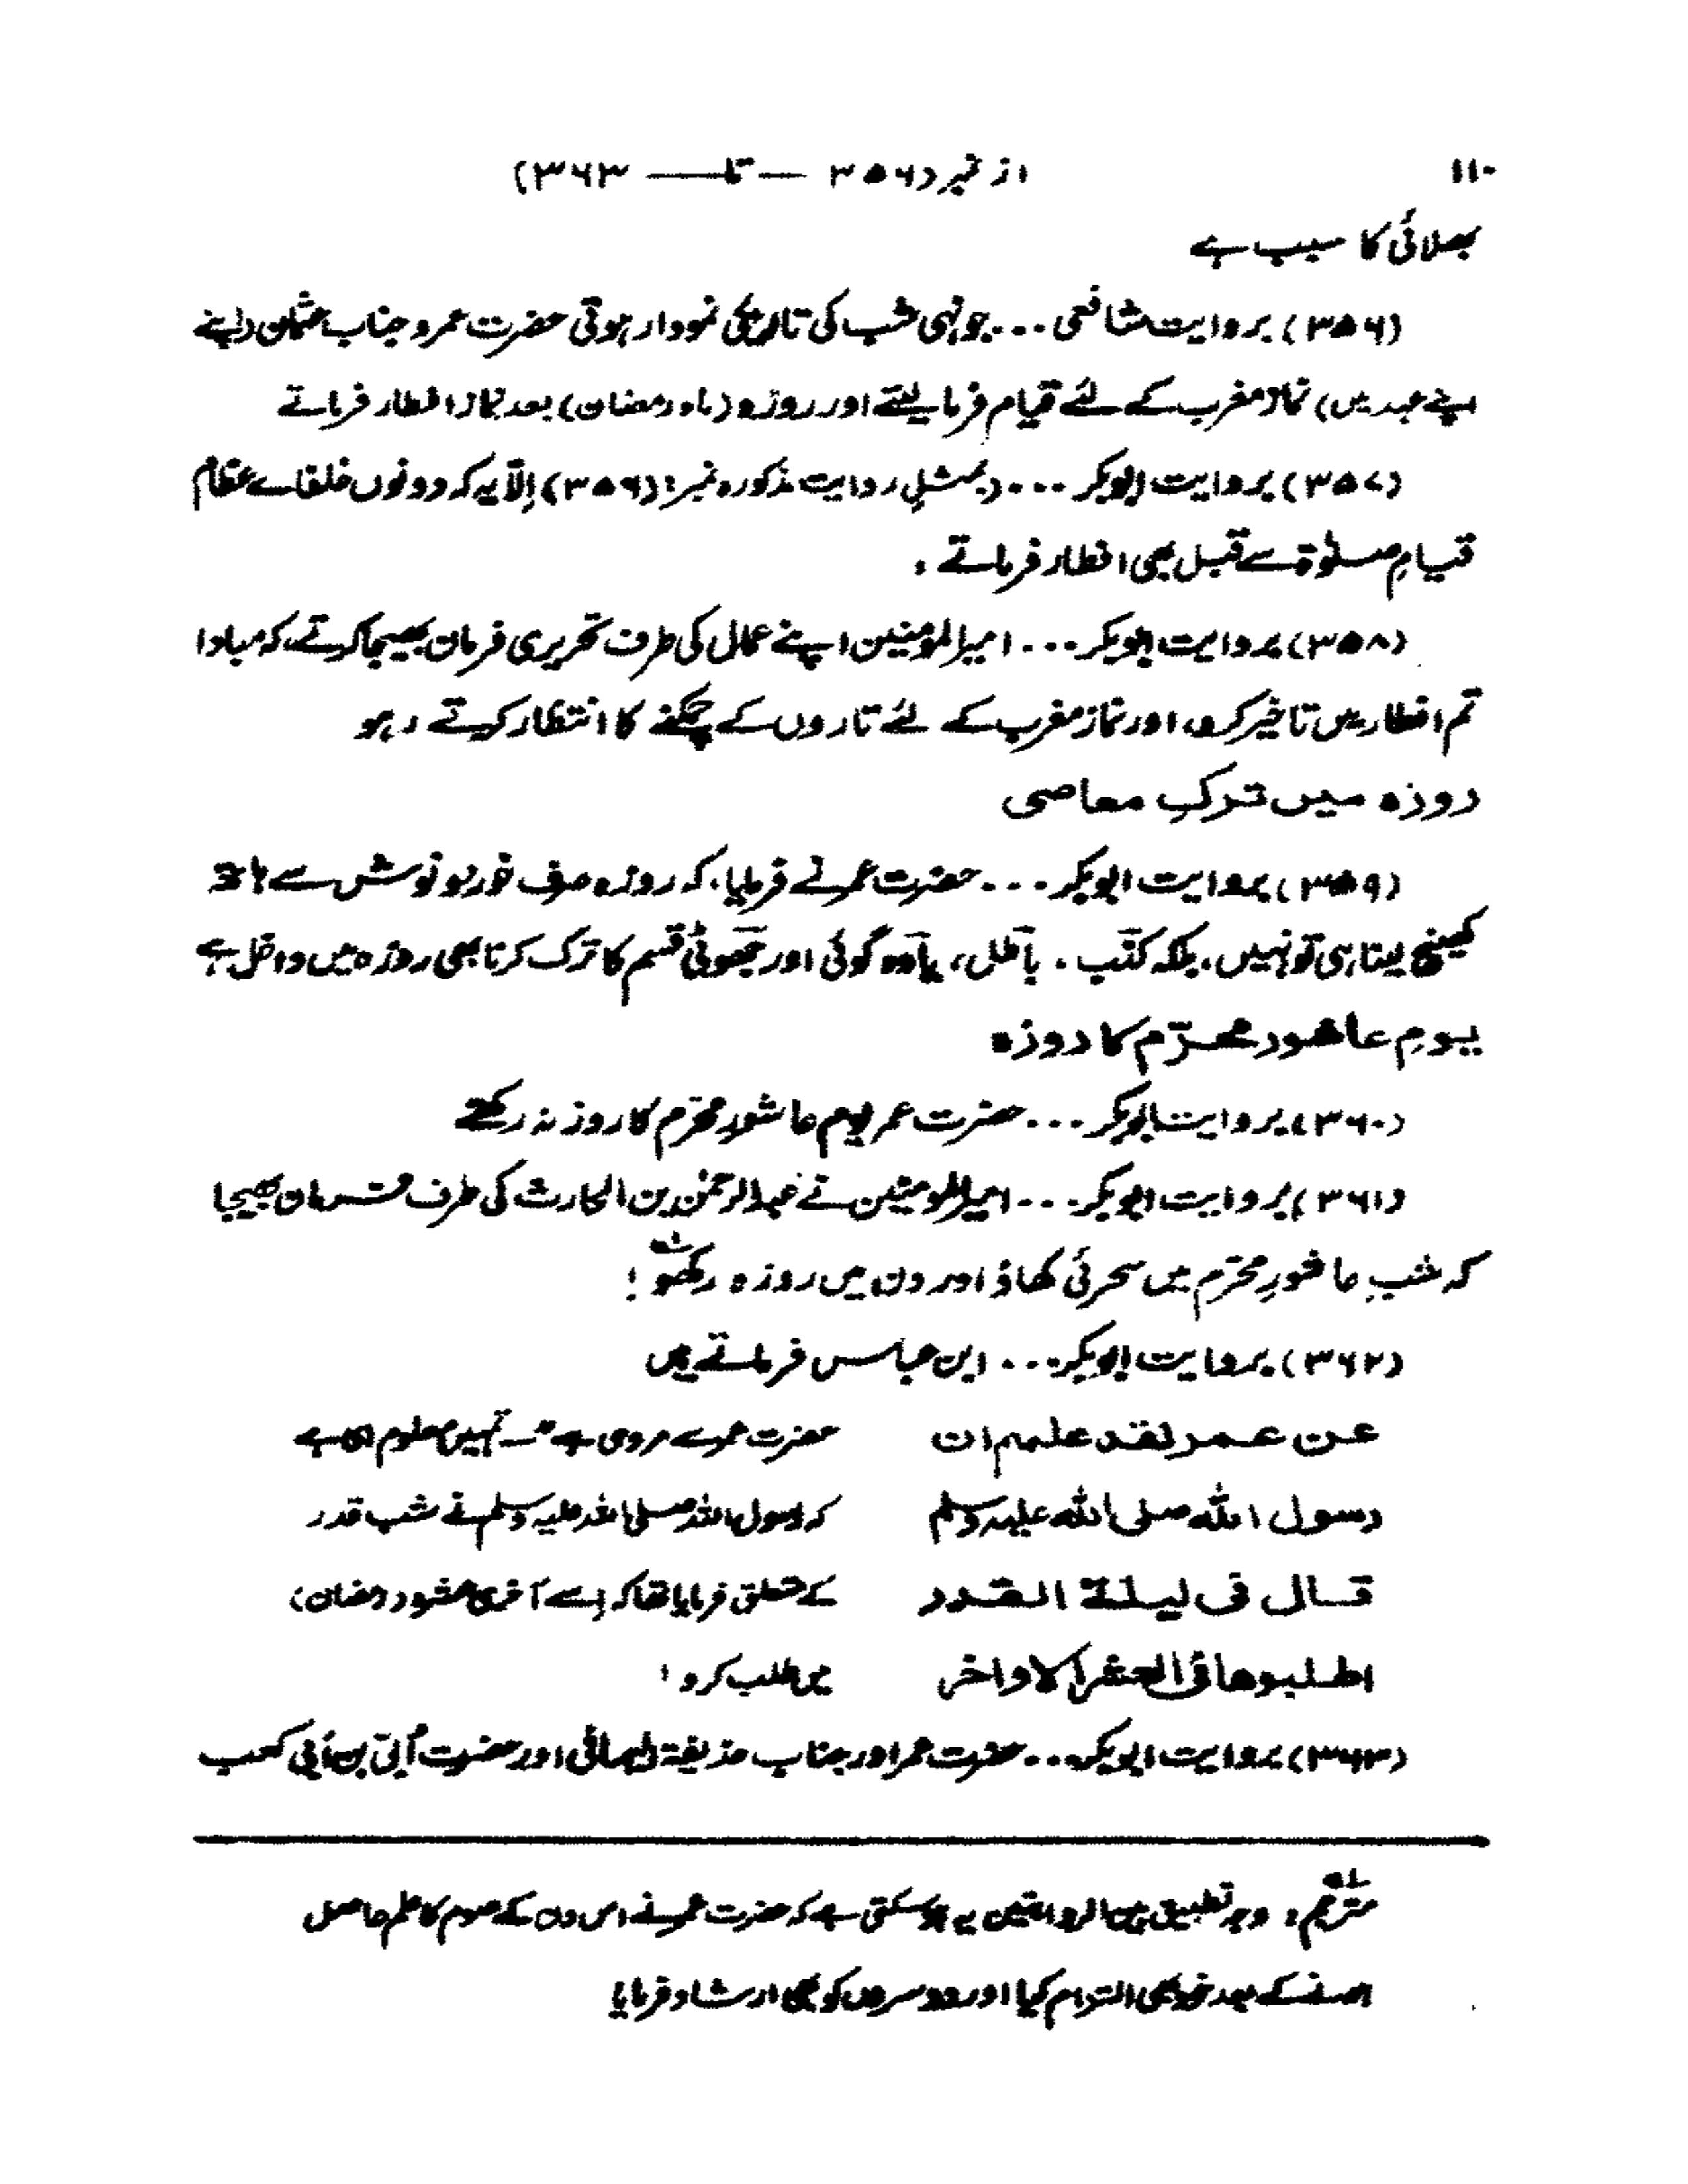 ۱۱۰ از نمبر (۳۵۶ — تا — ۳۶۳)
بھلائی کا سبب ہے
(۳۵۶) بروایت شافعی ... جونہی شب کی تاریکی نمودار ہوتی حضرت عمر و جناب عثمان (اپنے
اپنے عہد میں) نماز مغرب کے لئے قیام فرما لیتے اور روزہ (ماہ رمضان) بعد نماز افطار فرماتے
(۳۵۷) بروایت ابوبکر ... (بمثلِ روایت مذکورہ نمبر: (۳۵۶) اِلّا یہ کہ دونوں خلفاے عظام
قیامِ صلوٰۃ سے قبل بھی افطار فرماتے ،
(۳۵۸) بروایت ابوبکر ... امیرالمؤمنین اپنے عمال کی طرف تحریری فرمان بھیجا کرتے، کہ مبادا
تم افطار میں تاخیر کرو، اور نماز مغرب کے لئے تاروں کے چمکنے کا انتظار کرتے رہو
روزہ میں ترکِ معاصی
(۳۵۹) بروایت ابوبکر ... حضرت عمر نے فرمایا، کہ روزہ صرف خورد و نوش سے ہاتھ
کھینچ لینا ہی تو نہیں، بلکہ کذب ، باطل ، یاوہ گوئی اور جھوٹی قسم کا ترک کرنا بھی روزہ میں داخل ہے
یومِ عاشور محرّم کا روزہ
(۳۶۰) بروایت ابوبکر ... حضرت عمر یوم عاشورِ محرّم کا روزہ نہ رکھتے
(۳۶۱) بروایت ابوبکر ... امیرالمومنین نے عبدالرحمٰن بن الحارث کی طرف فرمان بھیجا
کہ شبِ عاشورِ محرّم میں سحرئی کھاؤ اور دن میں روزہ رکھو ؎۱ !
(۳۶۲) بروایت ابوبکر ... ابن عباس فرماتے ہیں
عن عمر لقد علمتم ان حضرت عمر سے مروی ہے تمہیں معلوم ہی ہے
رسول اللّٰہ صلی اللّٰہ علیہ وسلم کہ رسول اللہ صلی اللہ علیہ وسلم نے شب قدر
قال فی لیلۃ القدر کے متعلق فرمایا تھا کہ اسے آخری عشرہ (رمضان)
اطلبوھا فی العشر الاواخر میں طلب کرو !
(۳۶۳) بروایت ابوبکر ... حضرت عمر اور جناب حذیفۃ الیمانی اور حضرت اُبَیّ بن کعب
؎۱ مترجم : وجہ تطبیق بین الروایتین یہ ہو سکتی ہے کہ حضرت عمر نے اس دن کے صوم کا علم حاصل
ہونے کے بعد خود بھی التزام کیا اور دوسروں کو بھی ارشاد فرمایا